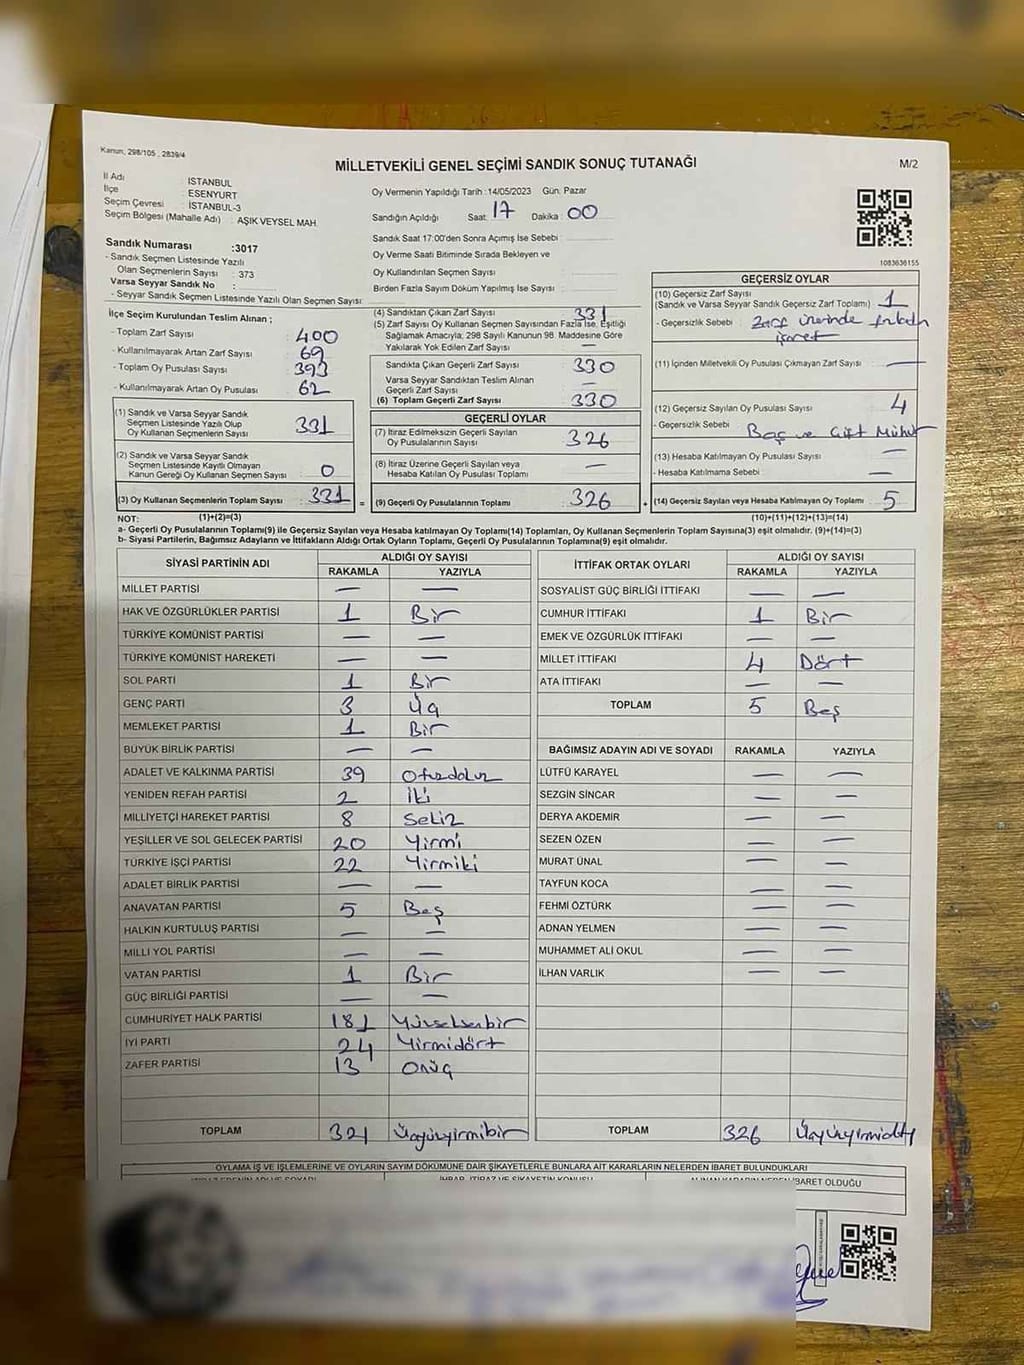 Kanun, 298/105 , 2839/4
MİLLETVEKİLİ GENEL SEÇİMİ SANDIK SONUÇ TUTANAĞI
M/2
İl Adı : İSTANBUL
İlçe : ESENYURT
Seçim Çevresi : İSTANBUL-3
Seçim Bölgesi (Mahalle Adı) : AŞIK VEYSEL MAH.
Sandık Numarası :3017
- Sandık Seçmen Listesinde Yazılı
Olan Seçmenlerin Sayısı : 373
Varsa Seyyar Sandık No :
- Seyyar Sandık Seçmen Listesinde Yazılı Olan Seçmen Sayısı:
Oy Vermenin Yapıldığı Tarih :14/05/2023 Gün: Pazar
Sandığın Açıldığı Saat: 17 Dakika : 00
Sandık Saat 17:00'den Sonra Açımış İse Sebebi :
Oy Verme Saati Bitiminde Sırada Bekleyen ve
Oy Kullandırılan Seçmen Sayısı :
Birden Fazla Sayım Döküm Yapılmış İse Sayısı :
1083636155
İlçe Seçim Kurulundan Teslim Alınan ;
- Toplam Zarf Sayısı : 400
- Kullanılmayarak Artan Zarf Sayısı : 69
- Toplam Oy Pusulası Sayısı : 393
- Kullanılmayarak Artan Oy Pusulası : 62
(1) Sandık ve Varsa Seyyar Sandık
Seçmen Listesinde Yazılı Olup
Oy Kullanan Seçmenlerin Sayısı : 331
(2) Sandık ve Varsa Seyyar Sandık
Seçmen Listesinde Kayıtlı Olmayan
Kanun Gereği Oy Kullanan Seçmen Sayısı : 0
(3) Oy Kullanan Seçmenlerin Toplam Sayısı : 331 =
(4) Sandıktan Çıkan Zarf Sayısı : 331
(5) Zarf Sayısı Oy Kullanan Seçmen Sayısından Fazla İse, Eşitliği
Sağlamak Amacıyla; 298 Sayılı Kanunun 98. Maddesine Göre
Yakılarak Yok Edilen Zarf Sayısı : —
Sandıkta Çıkan Geçerli Zarf Sayısı : 330
Varsa Seyyar Sandıktan Teslim Alınan
Geçerli Zarf Sayısı : —
(6) Toplam Geçerli Zarf Sayısı : 330
GEÇERLİ OYLAR
(7) İtiraz Edilmeksizin Geçerli Sayılan
Oy Pusulalarının Sayısı : 326
(8) İtiraz Üzerine Geçerli Sayılan veya
Hesaba Katılan Oy Pusulası Toplamı : —
(9) Geçerli Oy Pusulalarının Toplamı : 326 +
GEÇERSİZ OYLAR
(10) Geçersiz Zarf Sayısı
(Sandık ve Varsa Seyyar Sandık Geçersiz Zarf Toplamı) : 1
- Geçersizlik Sebebi : Zarf üzerinde
işaret
(11) İçinden Milletvekili Oy Pusulası Çıkmayan Zarf Sayısı : —
(12) Geçersiz Sayılan Oy Pusulası Sayısı : 4
- Geçersizlik Sebebi : Boş ve Çift Mühür
(13) Hesaba Katılmayan Oy Pusulası Sayısı : —
- Hesaba Katılmama Sebebi : —
(14) Geçersiz Sayılan veya Hesaba Katılmayan Oy Toplamı : 5
NOT: (1)+(2)=(3) (10)+(11)+(12)+(13)=(14)
a- Geçerli Oy Pusulalarının Toplamı(9) ile Geçersiz Sayılan veya Hesaba katılmayan Oy Toplamı(14) Toplamları, Oy Kullanan Seçmenlerin Toplam Sayısına(3) eşit olmalıdır. (9)+(14)=(3)
b- Siyasi Partilerin, Bağımsız Adayların ve İttifakların Aldığı Ortak Oyların Toplamı, Geçerli Oy Pusulalarının Toplamına(9) eşit olmalıdır.
SİYASİ PARTİNİN ADI ALDIĞI OY SAYISI
RAKAMLA YAZIYLA
MİLLET PARTİSİ — —
HAK VE ÖZGÜRLÜKLER PARTİSİ 1 Bir
TÜRKİYE KOMÜNİST PARTİSİ — —
TÜRKİYE KOMÜNİST HAREKETİ — —
SOL PARTİ 1 Bir
GENÇ PARTİ 3 Üç
MEMLEKET PARTİSİ 1 Bir
BÜYÜK BİRLİK PARTİSİ — —
ADALET VE KALKINMA PARTİSİ 39 Otuzdokuz
YENİDEN REFAH PARTİSİ 2 İki
MİLLİYETÇİ HAREKET PARTİSİ 8 Sekiz
YEŞİLLER VE SOL GELECEK PARTİSİ 20 Yirmi
TÜRKİYE İŞÇİ PARTİSİ 22 Yirmiki
ADALET BİRLİK PARTİSİ — —
ANAVATAN PARTİSİ 5 Beş
HALKIN KURTULUŞ PARTİSİ — —
MİLLİ YOL PARTİSİ — —
VATAN PARTİSİ 1 Bir
GÜÇ BİRLİĞİ PARTİSİ — —
CUMHURİYET HALK PARTİSİ 181 Yüzseksenbir
İYİ PARTİ 24 Yirmidört
ZAFER PARTİSİ 13 Onüç
TOPLAM 321 Üçyüzyirmibir
İTTİFAK ORTAK OYLARI ALDIĞI OY SAYISI
RAKAMLA YAZIYLA
SOSYALİST GÜÇ BİRLİĞİ İTTİFAKI — —
CUMHUR İTTİFAKI 1 Bir
EMEK VE ÖZGÜRLÜK İTTİFAKI — —
MİLLET İTTİFAKI 4 Dört
ATA İTTİFAKI — —
TOPLAM 5 Beş
BAĞIMSIZ ADAYIN ADI VE SOYADI RAKAMLA YAZIYLA
LÜTFÜ KARAYEL — —
SEZGİN SİNCAR — —
DERYA AKDEMİR — —
SEZEN ÖZEN — —
MURAT ÜNAL — —
TAYFUN KOCA — —
FEHMİ ÖZTÜRK — —
ADNAN YELMEN — —
MUHAMMET ALİ OKUL — —
İLHAN VARLIK — —
TOPLAM 326 Üçyüzyirmialtı
OYLAMA İŞ VE İŞLEMLERİNE VE OYLARIN SAYIM DÖKÜMÜNE DAİR ŞİKAYETLERLE BUNLARA AİT KARARLARIN NELERDEN İBARET BULUNDUKLARI
İBARET OLDUĞU